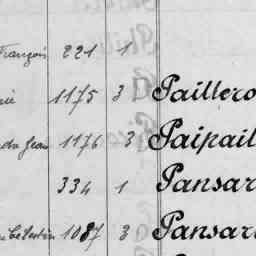 François 221 1
rie 1175 3 Paillero
do Jean 1176 3 Paipail
334 1 Pansar
Célestin 1087 3 Pansar